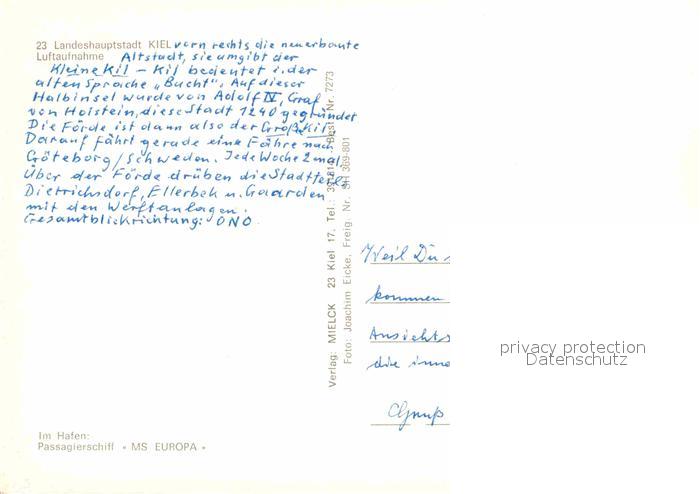 23 Landeshauptstadt KIEL vorn rechts die neuerbaute
Luftaufnahme Altstadt, sie umgibt der
Kleine Kil - Kil bedeutet i. der
alten Sprache „Bucht". Auf dieser
Halbinsel wurde von Adolf IV, Graf
von Holstein, diese Stadt 1240 gegründet
Die Förde ist dann also der Große Kil.
Darauf fährt gerade eine Fähre nach
Göteborg/Schweden. Jede Woche 2 mal
Über der Förde drüben die Stadtteile
Dietrichsdorf, Ellerbek u. Gaarden
mit den Werftanlagen.
Gesamtblickrichtung: ONO
Im Hafen:
Passagierschiff « MS EUROPA »
Verlag: MIELCK 23 Kiel 17, Tel.: Best. Nr. 7273
Foto: Joachim Eicke, Freig. Nr. SH 369-801
Weil Du
kommen
Ansichts
die inne
Gruß
privacy protection
Datenschutz